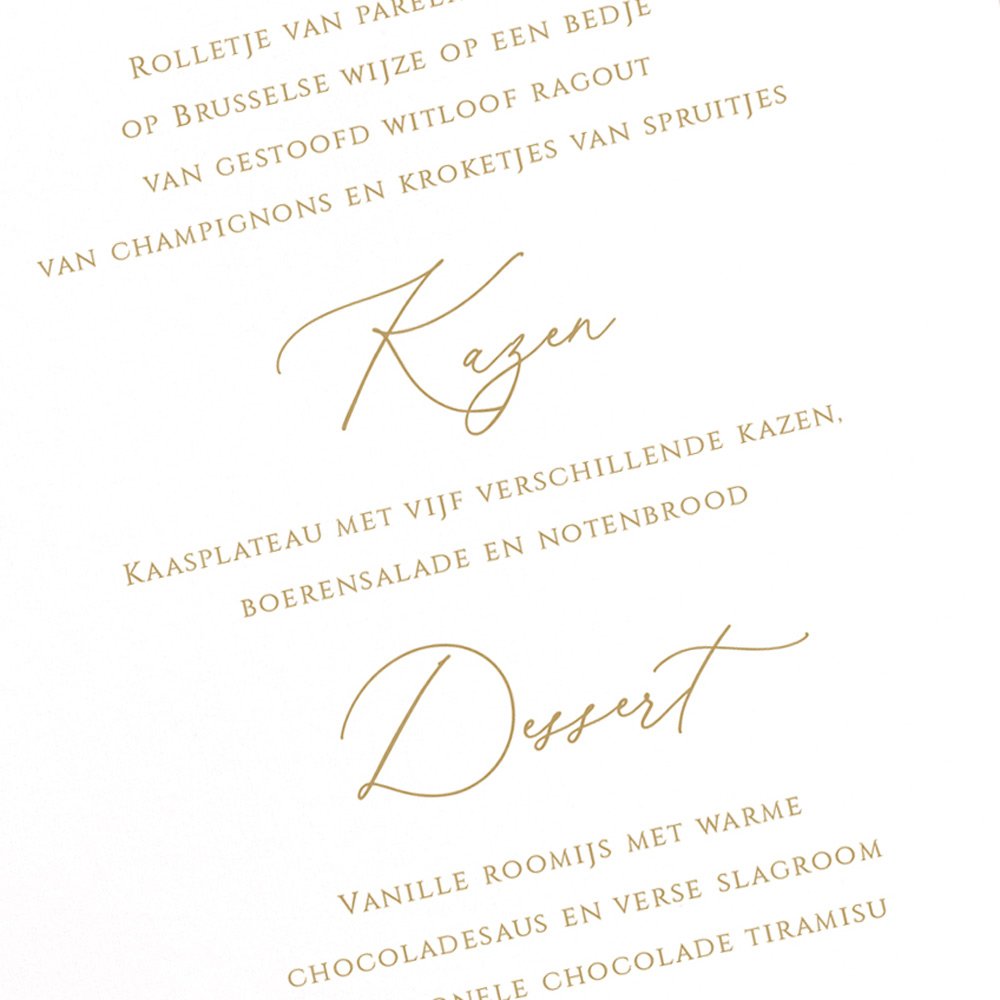 Rolletje van
op Brusselse wijze op een bedje
van gestoofd witloof ragout
van champignons en kroketjes van spruitjes
Kazen
Kaasplateau met vijf verschillende kazen,
boerensalade en notenbrood
Dessert
Vanille roomijs met warme
chocoladesaus en verse slagroom
chocolade tiramisu